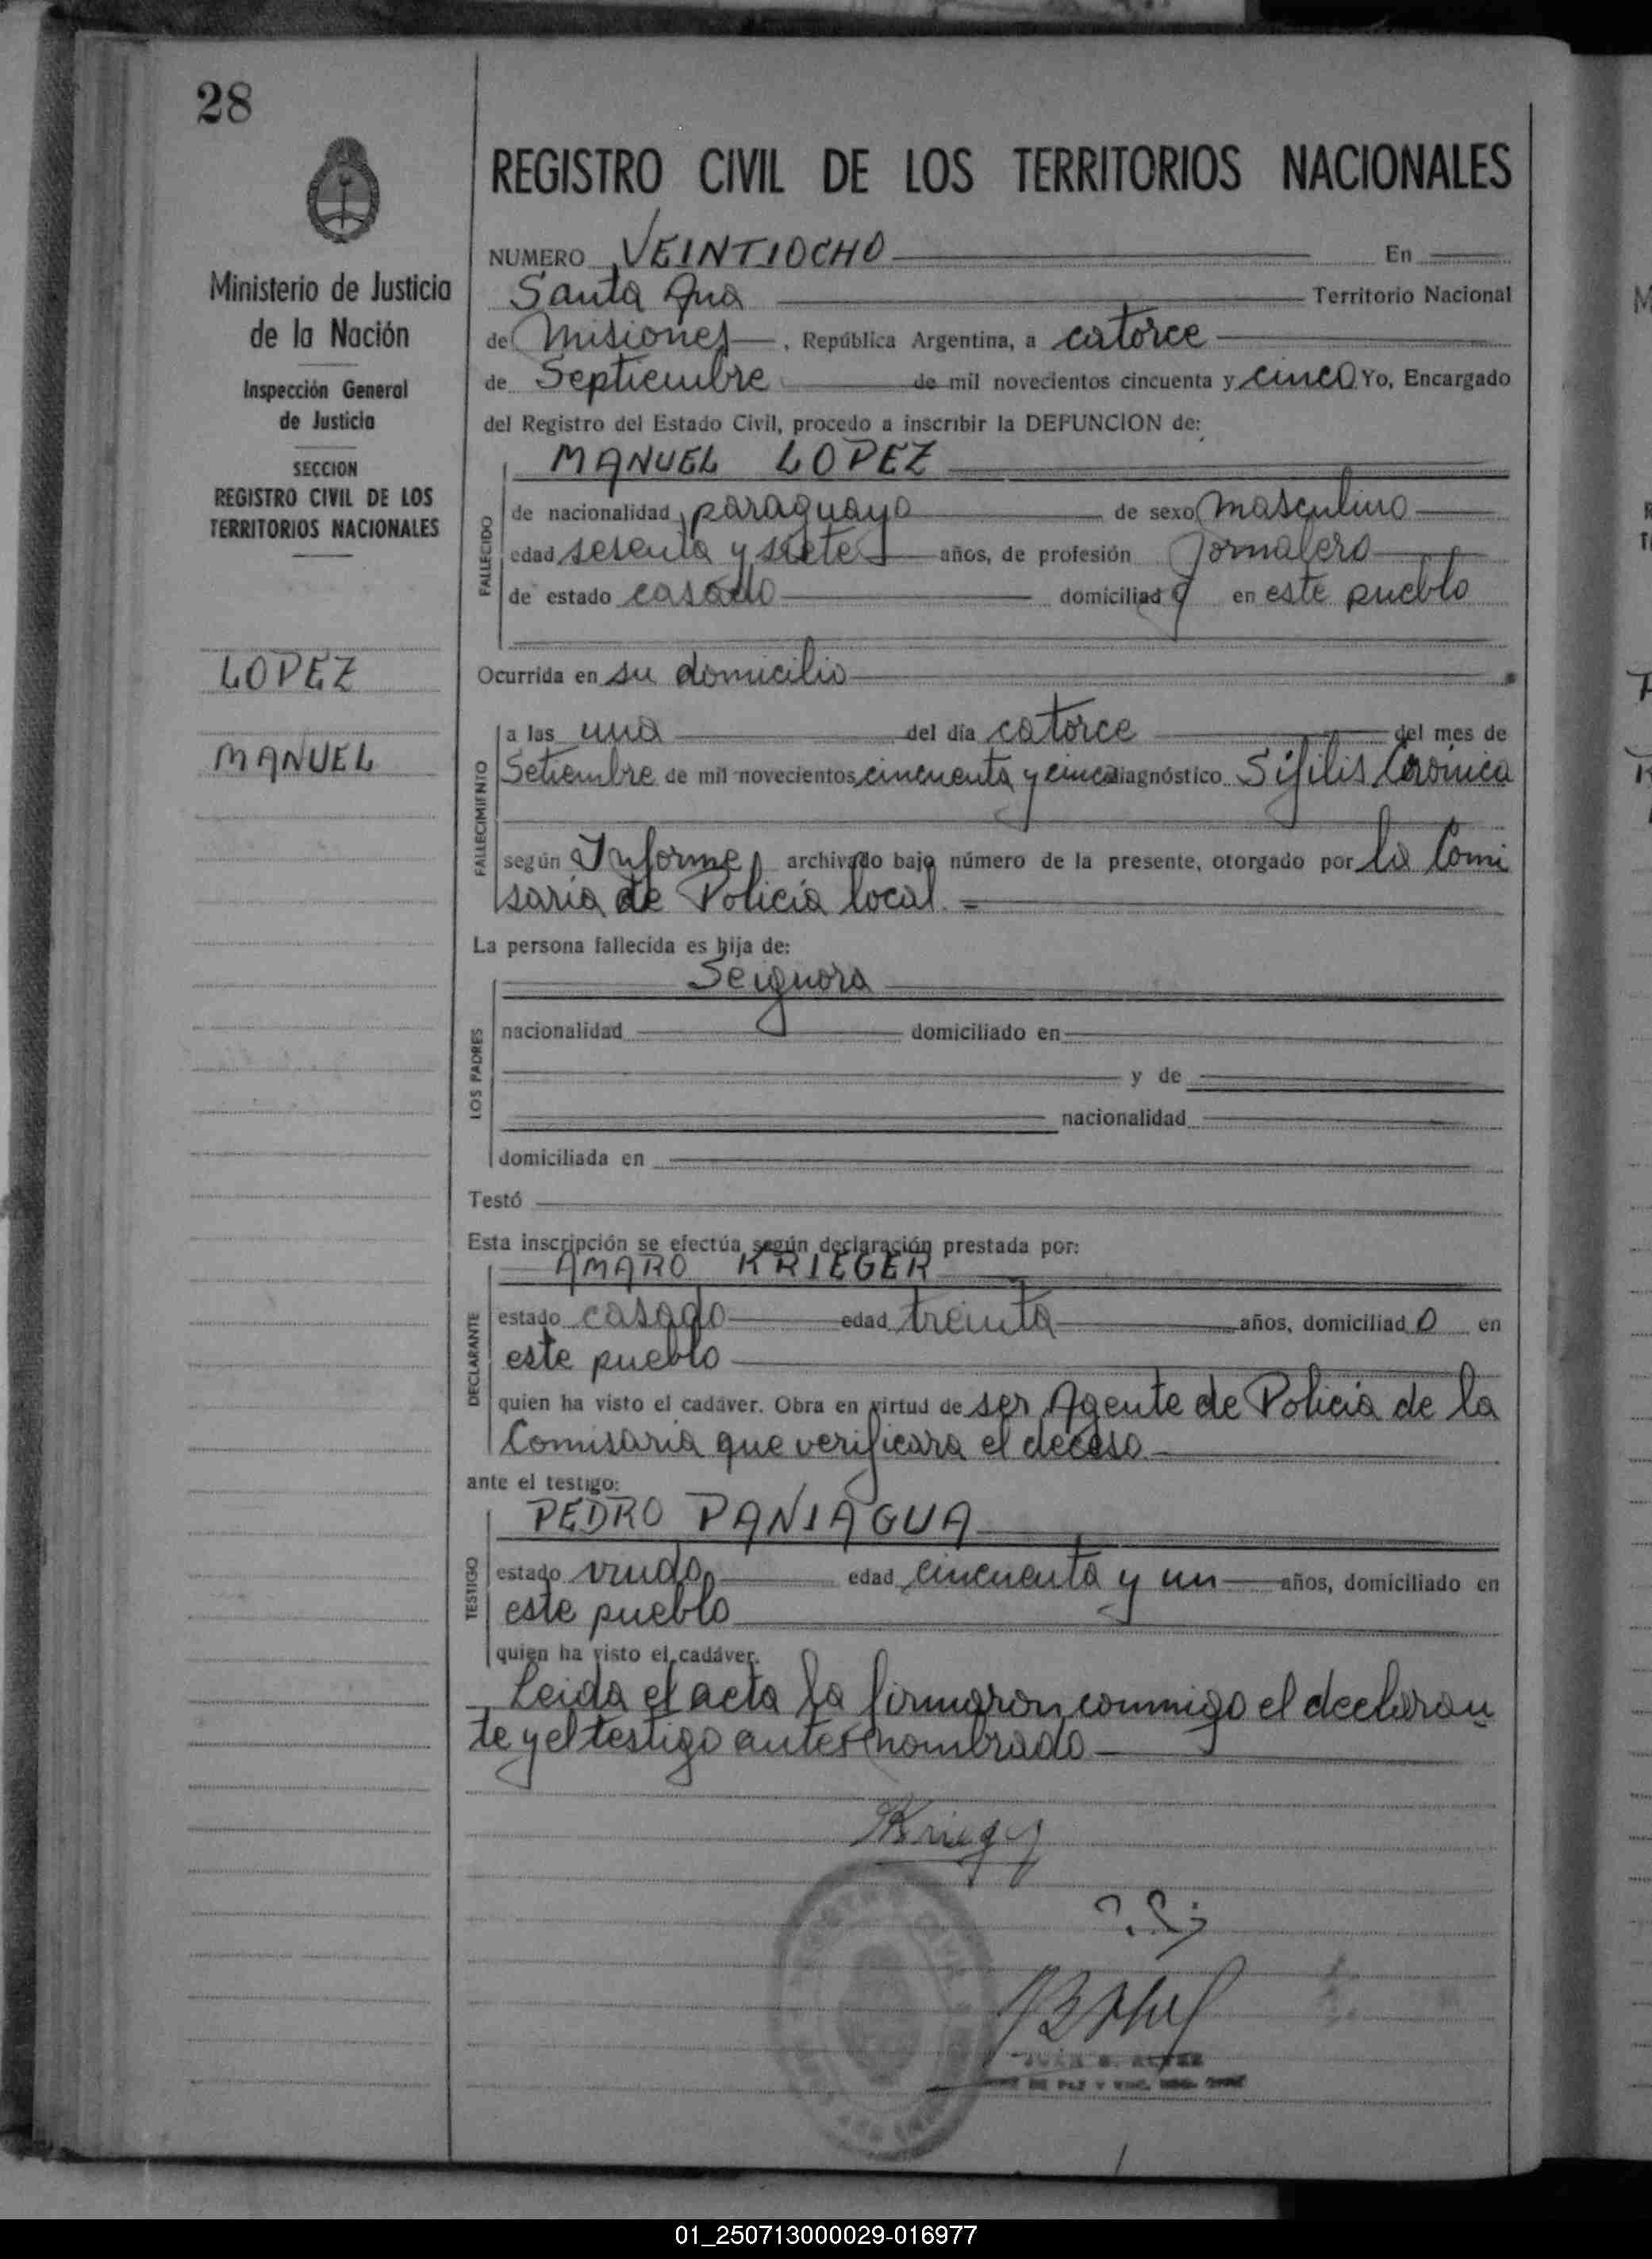 28
REGISTRO CIVIL DE LOS TERRITORIOS NACIONALES
Ministerio de Justicia
de la Nación
Inspección General
de Justicia
SECCION
REGISTRO CIVIL DE LOS
TERRITORIOS NACIONALES
LOPEZ
MANUEL
NUMERO VEINTIOCHO En
Santa Ana Territorio Nacional
de Misiones, República Argentina, a catorce
de Septiembre de mil novecientos cincuenta y cinco Yo, Encargado
del Registro del Estado Civil, procedo a inscribir la DEFUNCION de:
FALLECIDO
MANUEL LOPEZ
de nacionalidad paraguaya de sexo masculino
edad sesenta y siete años, de profesión Jornalero
de estado casado domiciliad o en este pueblo
Ocurrida en su domicilio
FALLECIMIENTO
a las una del día catorce del mes de
Setiembre de mil novecientos cincuenta y cinco diagnóstico Sífilis Crónica
según Informe archivado bajo número de la presente, otorgado por la Comi
saría de Policía local. =
La persona fallecida es hija de:
LOS PADRES
Se ignora
nacionalidad domiciliado en
y de
nacionalidad
domiciliada en
Testó
Esta inscripción se efectúa según declaración prestada por:
DECLARANTE
AMARO KRIEGER
estado casado edad treinta años, domiciliad o en
este pueblo
quien ha visto el cadáver. Obra en virtud de ser Agente de Policía de la
Comisaria que verificara el deceso
ante el testigo:
TESTIGO
PEDRO PANIAGUA
estado viudo edad cincuenta y un años, domiciliado en
este pueblo
quien ha visto el cadáver.
Leida el acta la firmaron conmigo el declaran
te y el testigo antes nombrado
Krieger
01_250713000029-016977